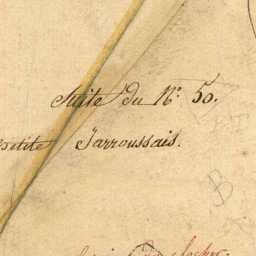 Suite du N° 50.
petite Jarroussais.